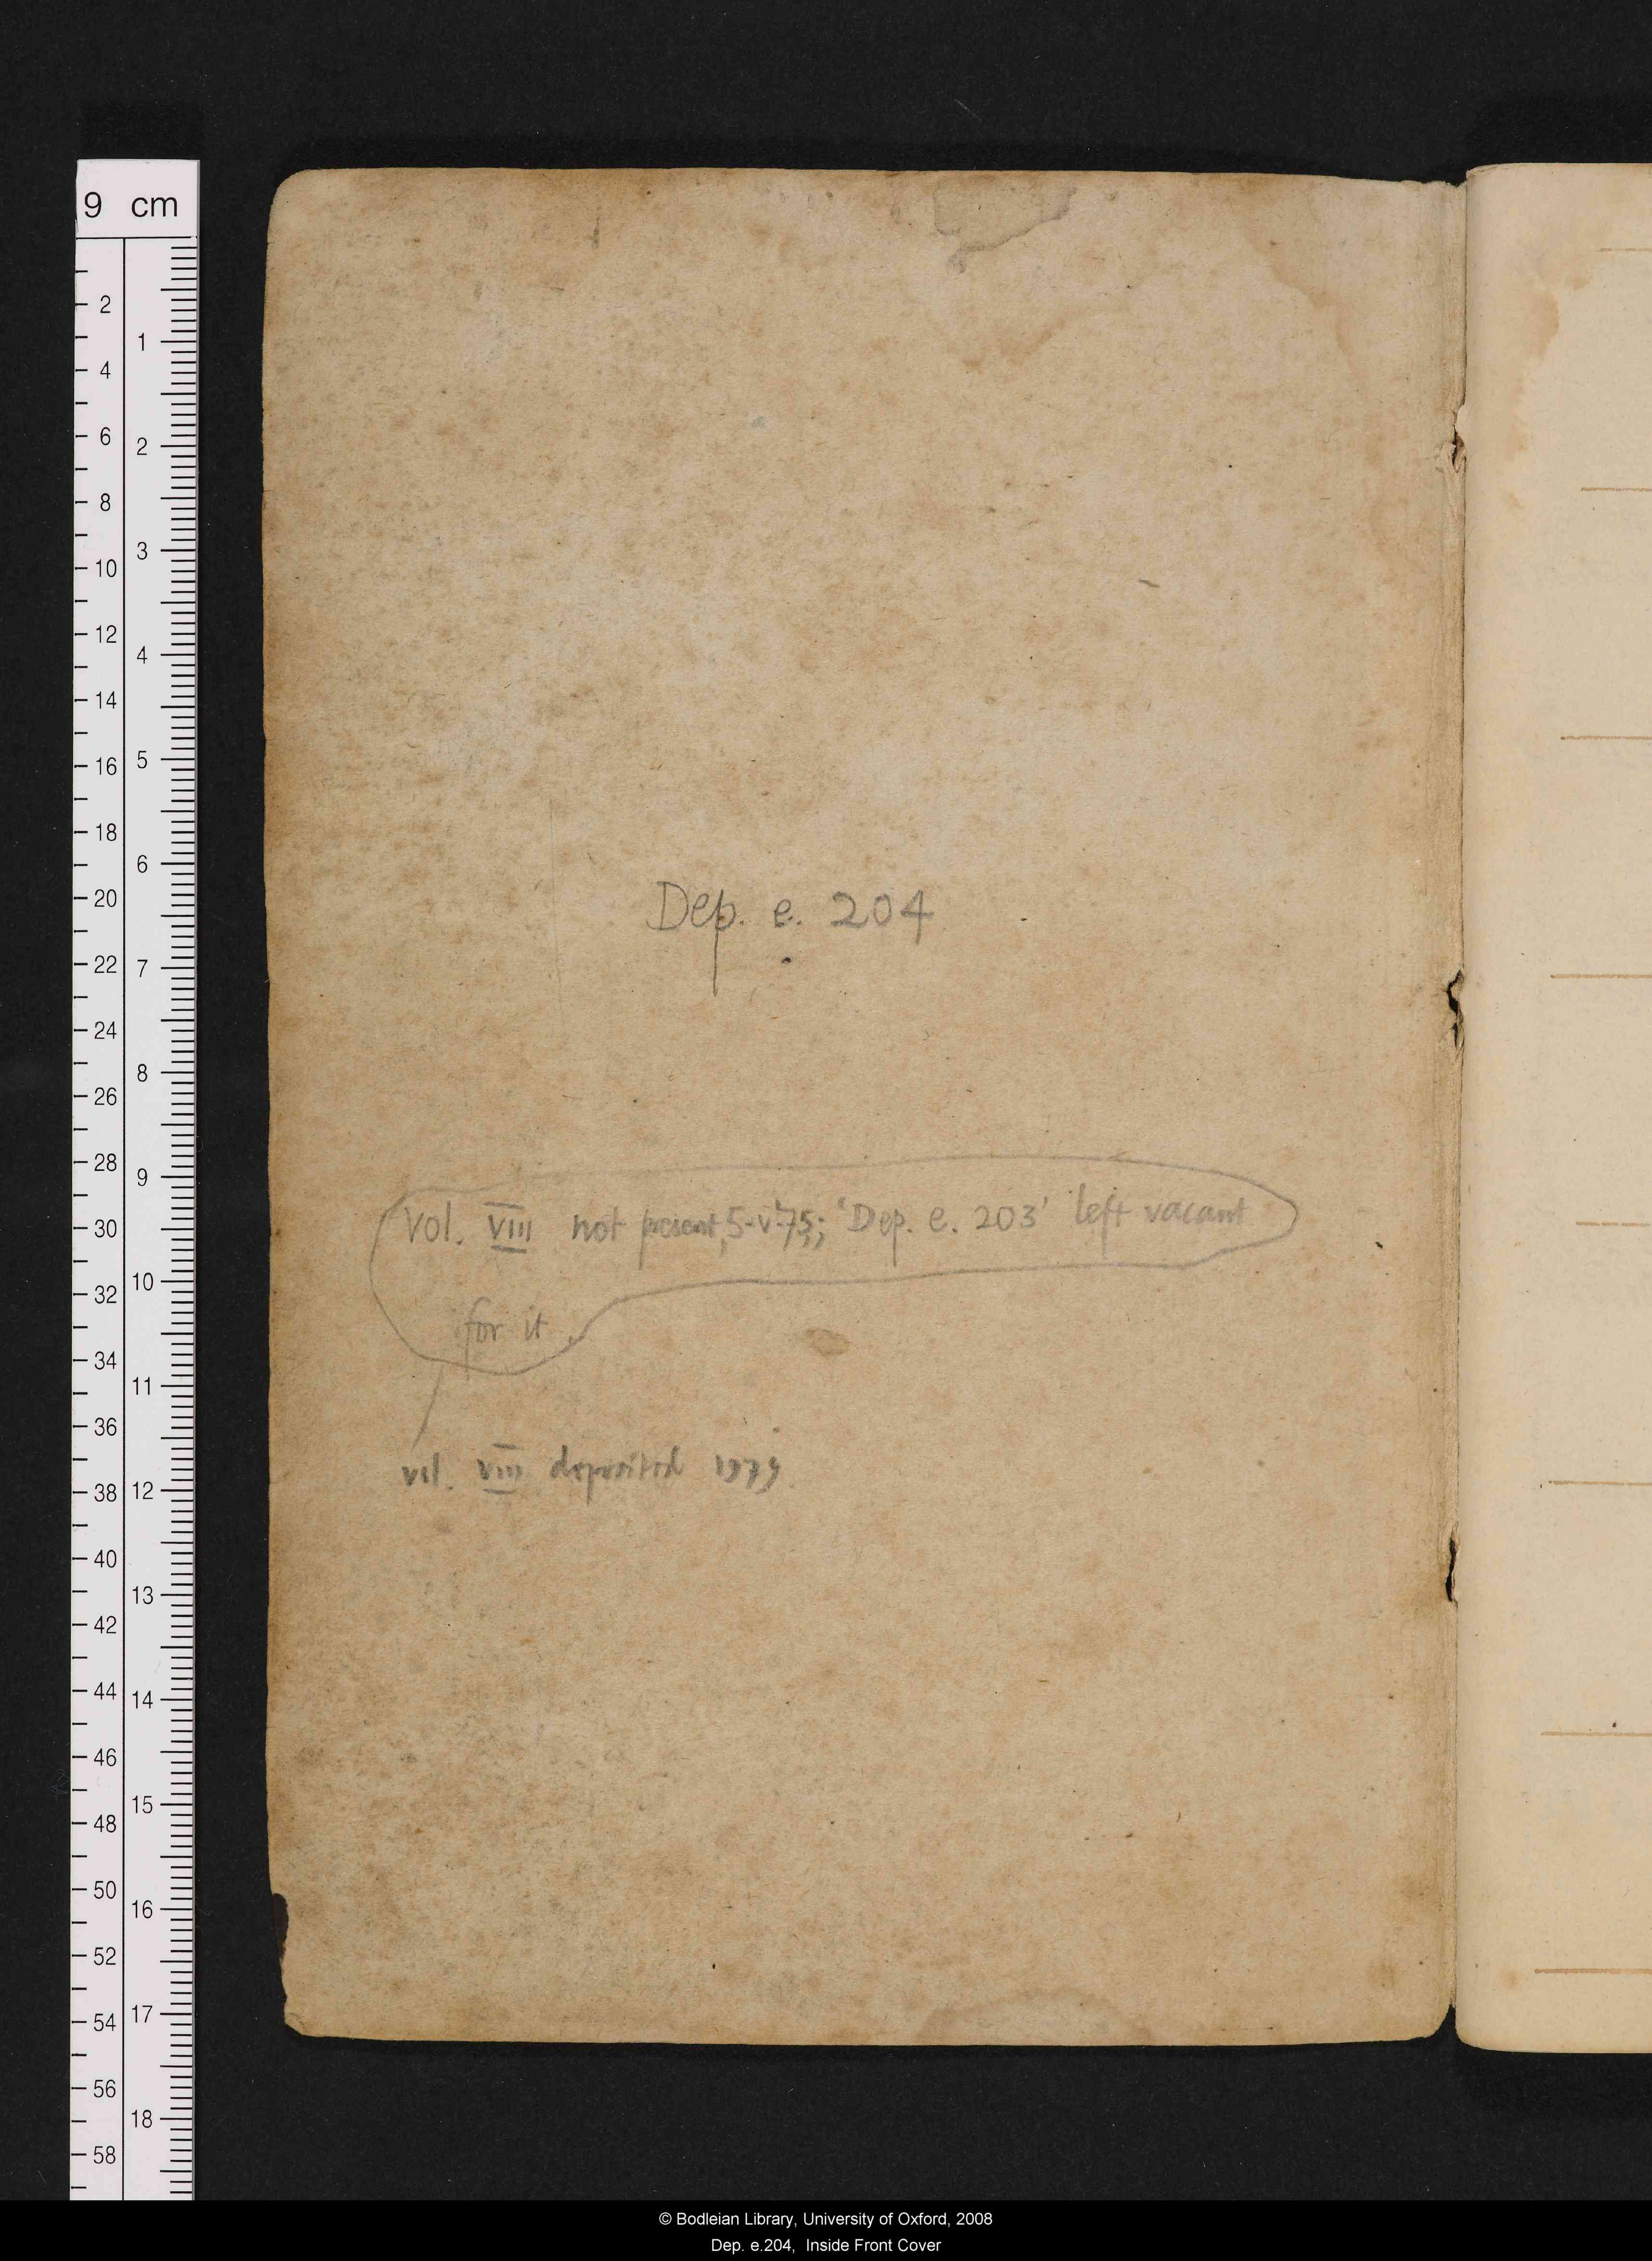 9 cm
2
4
6
8
10
12
14
16
18
20
22
24
26
28
30
32
34
36
38
40
42
44
46
48
50
52
54
56
58
1
2
3
4
5
6
7
8
9
10
11
12
13
14
15
16
17
18
Dep. e. 204
Vol. VIII not present, 5-V-75; 'Dep. e. 203' left vacant
for it
vol. VIII deposited 1979
© Bodleian Library, University of Oxford, 2008
Dep. e.204, Inside Front Cover